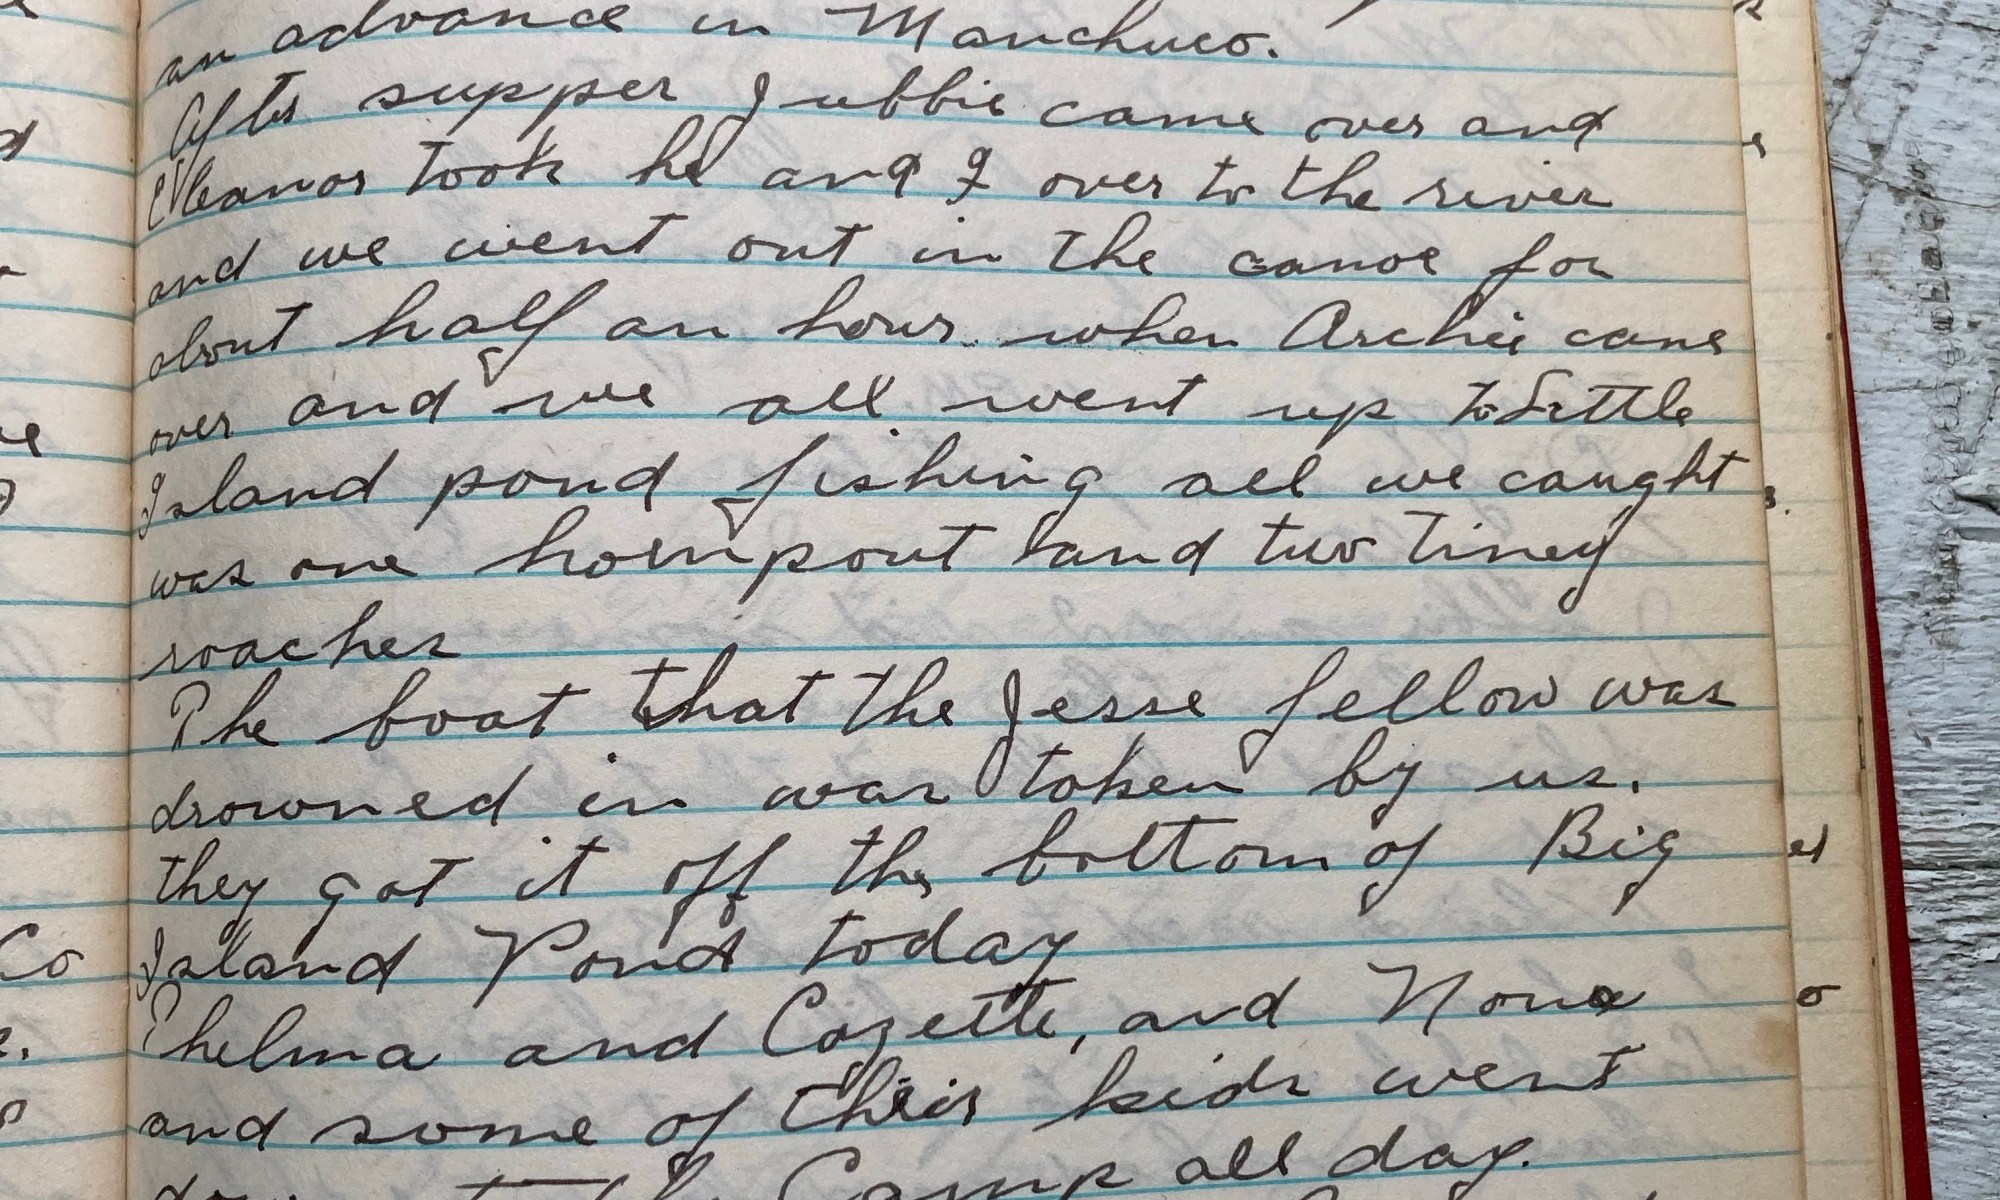 an advance in Manchuco.
After supper Jubbie came over and
Eleanor took he and I over to the river
and we went out in the canoe for
about half an hour when Archie came
over and we all went up to Little
Island pond fishing all we caught
was one hornpout and two tiney
roaches
The boat that the Jesse fellow was
drowned in was taken by us.
they got it off the bottom of Big
Island Pond today
Thelma and Cozette, and Nona
and some of their kids went
Camp all day.